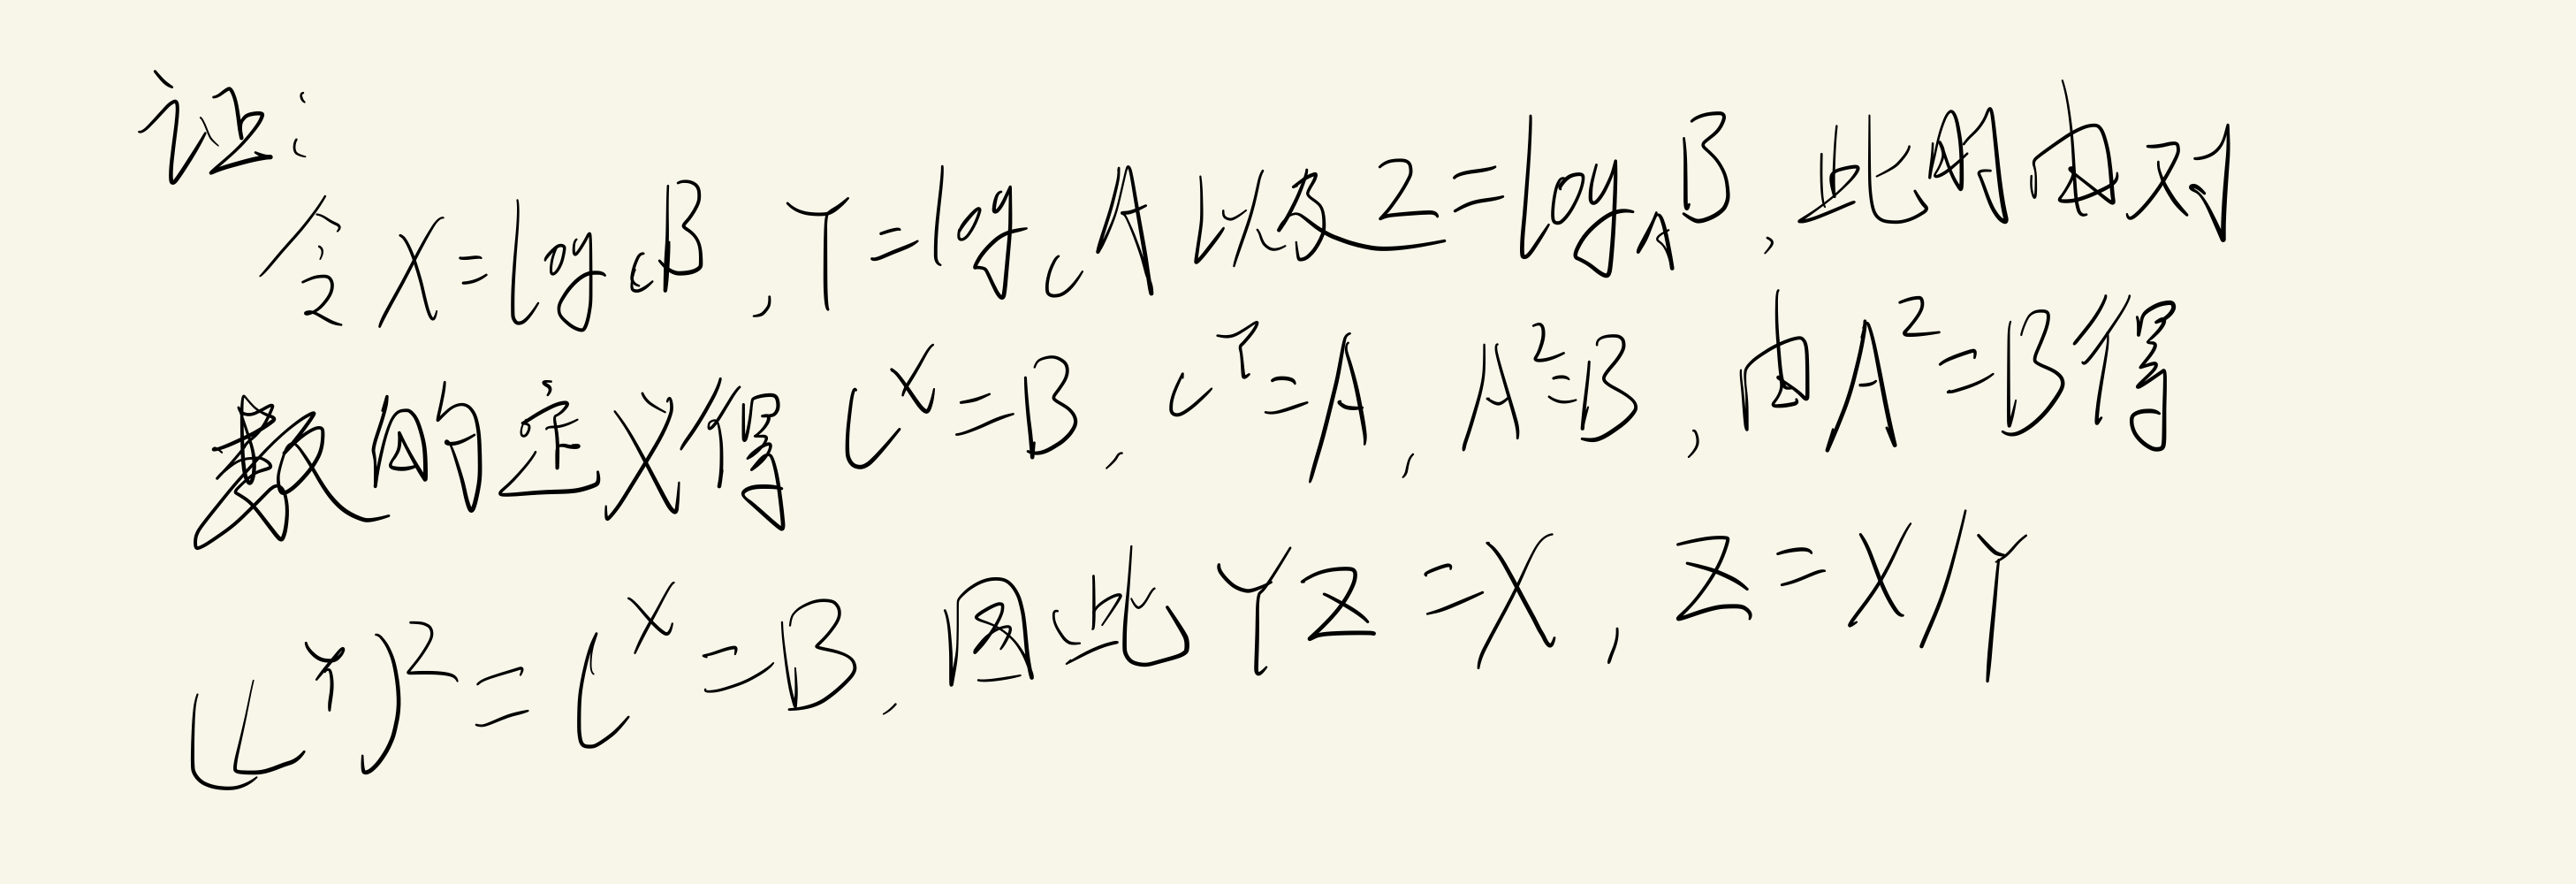 证:
令 X=log_C B, Y=log_C A 以及 Z=log_A B, 此时由对
数的定义得 C^X=B, C^Y=A, A^Z=B, 由 A^Z=B 得
(C^Y)^Z=C^X=B, 因此 YZ=X, Z=X/Y